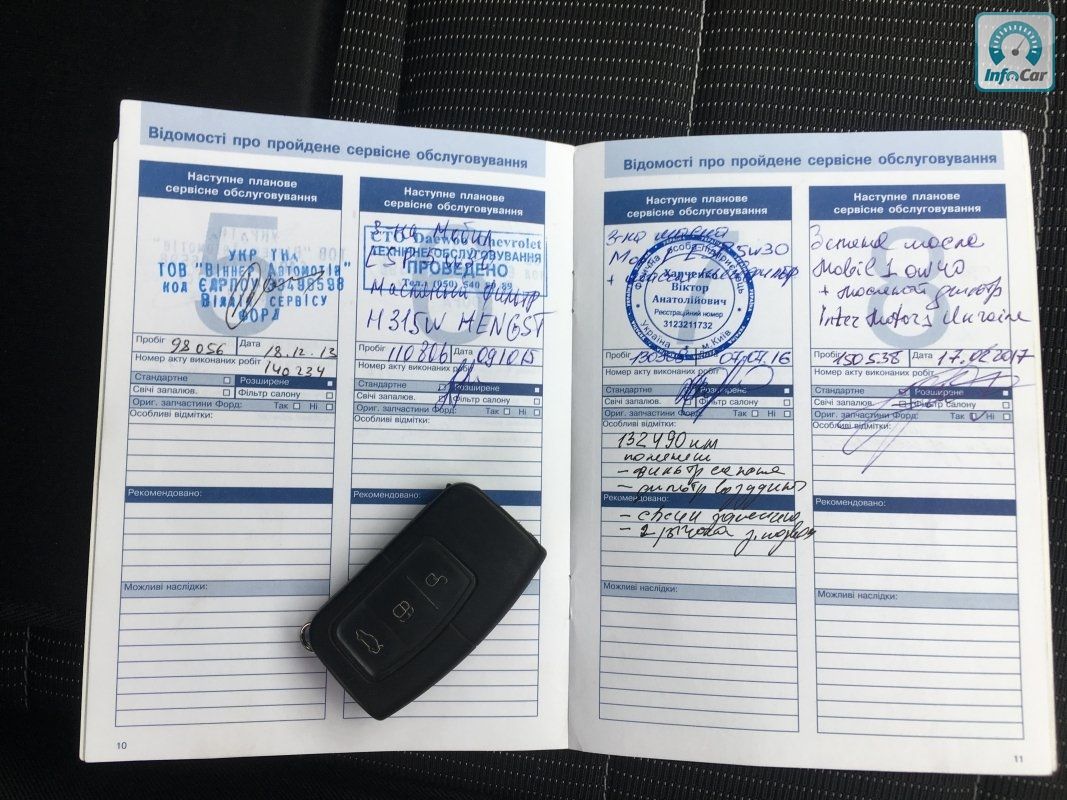 InfoCar
Відомості про пройдене сервісне обслуговування
Наступне планове
сервісне обслуговування
УКРАЇНА
ТОВ "Віннер Автомотів"
код ЄДРПОУ 33498598
Відділ сервісу
ФОРД
Пробіг 98056 Дата 18.12.13
Номер акту виконаних робіт
140234
Стандартне Розширене
Свічі запалюв. Фільтр салону
Ориг. запчастини Форд: Так Ні
Особливі відмітки:
Рекомендовано:
Можливі наслідки:
10
Наступне планове
сервісне обслуговування
З-на Мобил
СТО Daewoo Chevrolet
ТЕХНІЧНЕ ОБСЛУГОВУВАННЯ
ПРОВЕДЕНО
Тел.: (050) 540
Масляный фильтр
H315W HENGST
Пробіг 110806 Дата 091015
Номер акту виконаних робіт
Стандартне Розширене
Свічі запалюв. Фільтр салону
Ориг. запчастини Форд: Так Ні
Особливі відмітки:
Рекомендовано:
Можливі наслідки:
Відомості про пройдене сервісне обслуговування
Наступне планове
сервісне обслуговування
З-на масла
5w30
фізична особа-підприємець
Харченко
Віктор
Анатолійович
Реєстраційний номер
3123211732
Україна м. Київ
Пробіг Дата 07.07.16
Номер акту виконаних робіт
Стандартне Розширене
Свічі запалюв. Фільтр салону
Ориг. запчастини Форд: Так Ні
Особливі відмітки:
132490 km
- фильтр салона
- фильтр
Рекомендовано:
Можливі наслідки:
Наступне планове
сервісне обслуговування
Замена масла
Mobil 1 0W40
+ масляный фильтр
Inter Motors Ukraine
Пробіг 150538 Дата 17.02.2017
Номер акту виконаних робіт
Стандартне Розширене
Свічі запалюв. Фільтр салону
Ориг. запчастини Форд: Так Ні
Особливі відмітки:
Рекомендовано:
Можливі наслідки:
11